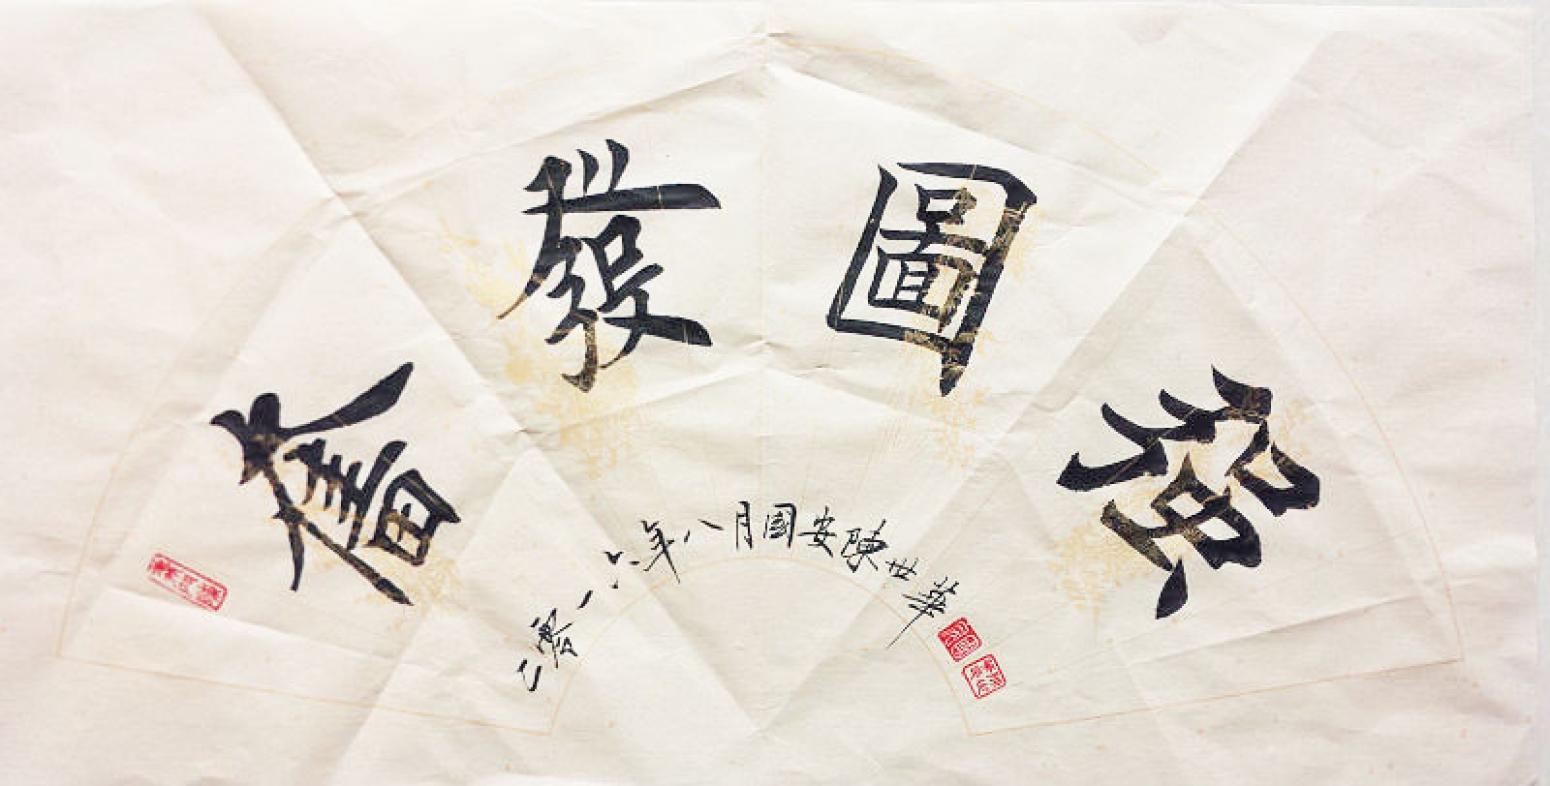 奮發圖強
二零一六年八月國安陳世華